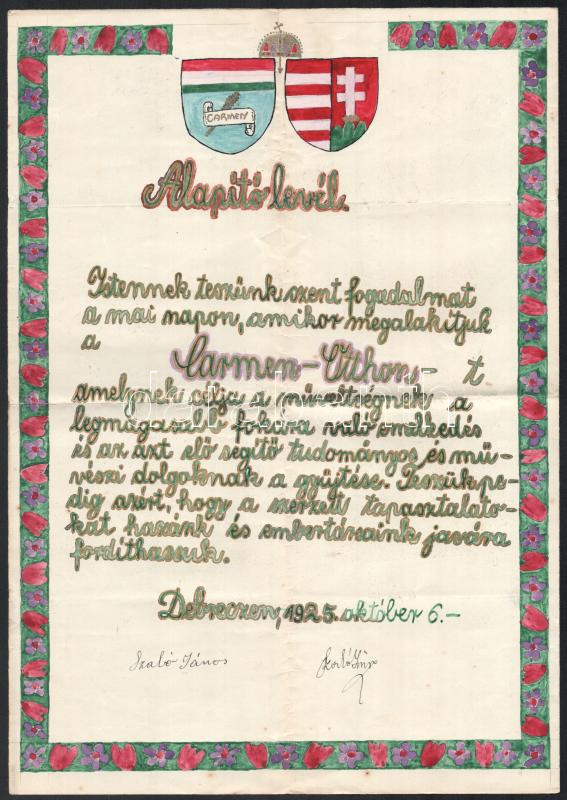 CARMEN
Alapító levél.
Istennek teszünk szent fogadalmat
a mai napon, amikor megalakítjuk
a
Carmen-Otthon-t
amelynek célja a műveltségnek a
legmagasabb fokára való emelkedés
és az azt elő segítő tudományos és mű-
vészi dolgoknak a gyűjtése. Teszük pe-
dig azért, hogy a szerzett tapasztalato-
kat hazánk és embertársaink javára
fordíthassuk.
Debreczen, 1925. október 6.-
Szabó János